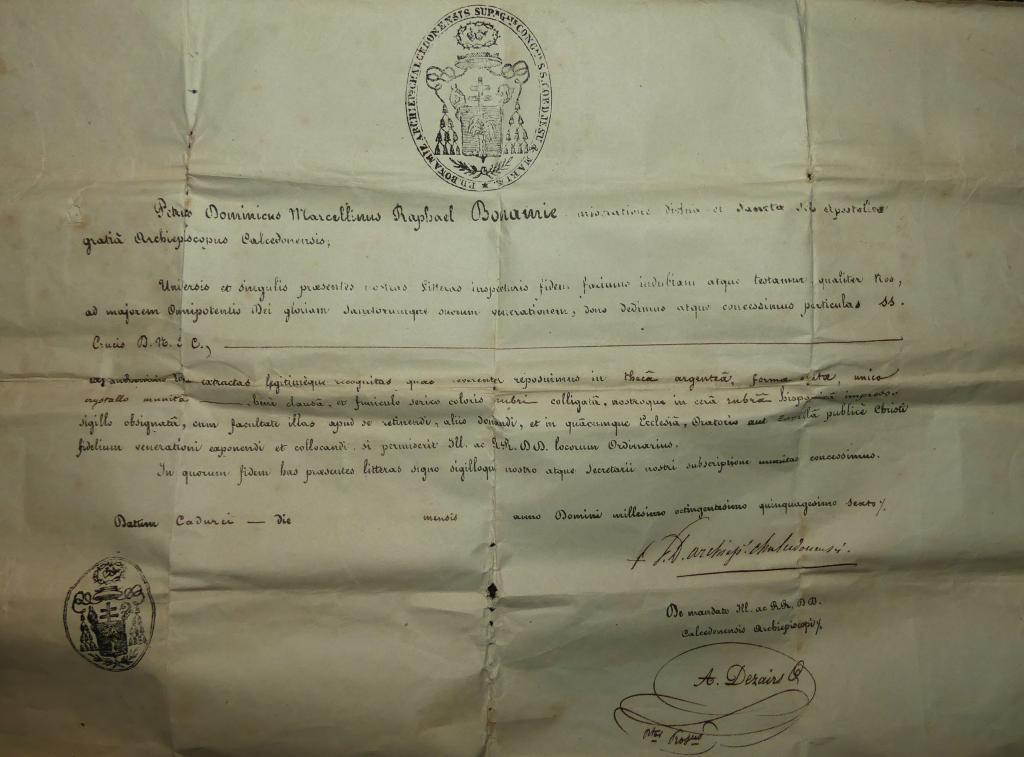 P.D. BONAMIE ARCHIEPus CHALCEDONENSIS SUPor GAlis CONGnis S.S. CORD. JESU & MARIÆ
Petrus Dominicus Marcellinus Raphael Bonamie miseratione divina et Sanctæ Sedis Apostolicæ
gratiâ Archiepiscopus Calcedonensis;
Universis et singulis præsentes nostras litteras inspecturis fidem facimus indubiam atque testamur, qualiter Nos,
ad majorem Omnipotentis Dei gloriam Sanctorumque suorum venerationem, dono dedimus atque concessimus particulas SS.
Crucis D. N. J. C.,
extractas legitimèque recognitas quas reverenter reposuimus in thecâ argenteâ, formæ unico
crystallo munitâ bene clausâ, et funiculo serico coloris rubri colligatâ, nostroque in cerâ rubrâ Hispanicâ impresso
sigillo obsignatâ, cum facultate illas apud se retinendi, aliis donandi, et in quâcumque Ecclesiâ, Oratorio aut Capellâ publicè Christi
fidelium venerationi exponendi et collocandi, si permiserit Ill. ac R.R. DD. locorum Ordinarius.
In quorum fidem has præsentes litteras signo sigilloque nostro atque Secretarii nostri subscriptione munitas concessimus.
Datum Cadurci — die mensis anno Domini millesimo octingentesimo quinquagesimo sexto
† P.D. archiep. chalcedonensis.
De mandato Ill. ac R.R. DD.
Calcedonensis Archiepiscopi
A. Dezairs